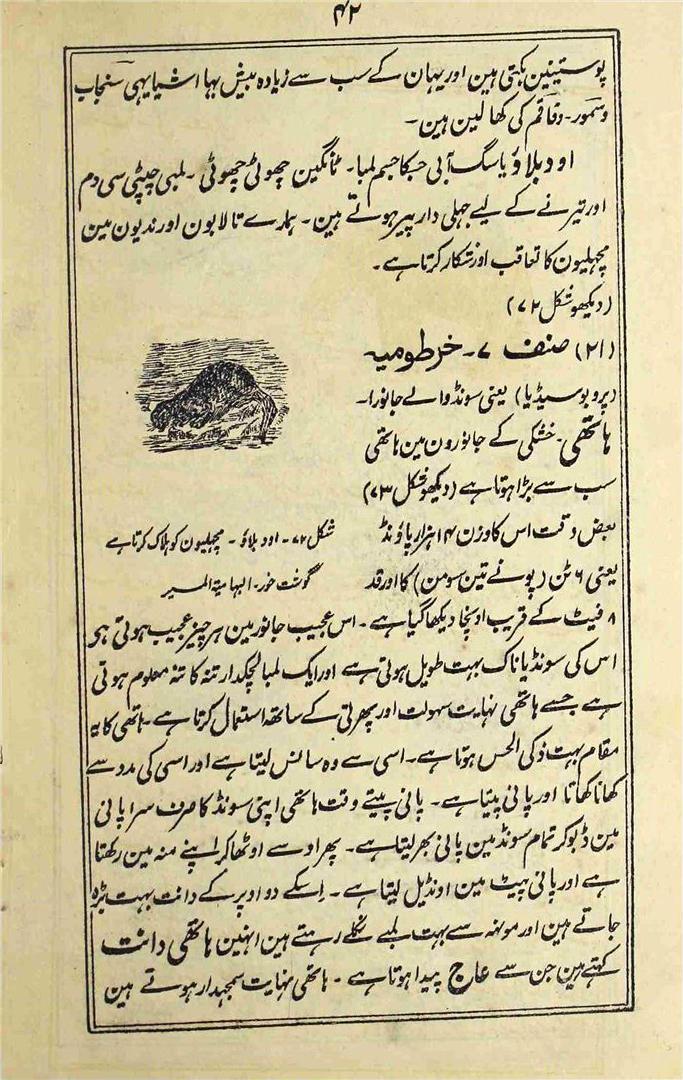 ۴۲
پوستینین بکتی ہین اور یہان کے سب سے زیادہ بیش بہا اشیا یہی سنجاب
وسمور۔ وقاقم کی کھالین ہین۔
اود بلاؤ یا سگ آبی جسکا جسم لمبا۔ ٹانگین چھوٹی چھوٹی ۔ لمبی چپٹی سی دم
اور تیرنے کے لیے جہلی دار پیر ہوتے ہین۔ ہمارے تالابون اور ندیون مین
مچہلیون کا تعاقب اور شکار کرتا ہے۔
(دیکھو شکل ۷۲)
(۲۱) صنف ۷۔ خرطومیہ
(پروبوسیڈیا) یعنی سونڈوالے جانور۔
ہاتھی۔ خشکی کے جانورون مین ہاتھی
سب سے بڑا ہوتا ہے (دیکھو شکل ۷۳)
بعض وقت اس کا وزن ۱۴ ہزار پاؤنڈ
یعنی ۶ ٹن (پونے تین سومن) کا اور قد
شکل ۷۲۔ اود بلاؤ ۔ مچہلیون کو ہلاک کرتا ہے
گوشت خور۔ ابہامیۃ السیر
۸ فیٹ کے قریب اونچا دیکھا گیا ہے۔ اس عجیب جانور مین ہر چیز عجیب ہوتی ہے
اس کی سونڈ یا ناک بہت طویل ہوتی ہے اور ایک لمبا لچکدار تنہ کا تنہ معلوم ہوتی
ہے جسے ہاتھی نہایت سہولت اور پھرتی کے ساتھ استعمال کرتا ہے۔ ہاتھی کا یہ
مقام بہت ذکی الحس ہوتا ہے۔ اسی سے وہ سانس لیتا ہے اور اسی کی مدد سے
کھانا کھاتا اور پانی پیتا ہے۔ پانی پیتے وقت ہاتھی اپنی سونڈ کا صرف سرا پانی
مین ڈبو کر تمام سونڈ مین پانی بھر لیتا ہے۔ پھر اوسے اوٹھا کر اپنے منہ مین رکھتا
ہے اور پانی پیٹ مین اونڈیل لیتا ہے۔ اسکے دو اوپر کے دانت بہت بڑہ
جاتے ہین اور مونہہ سے بہت لمبے نکلے رہتے ہین انہین ہاتھی دانت
کہتے ہین جن سے عاج پیدا ہوتا ہے ۔ ہاتھی نہایت سمجہدار ہوتے ہین